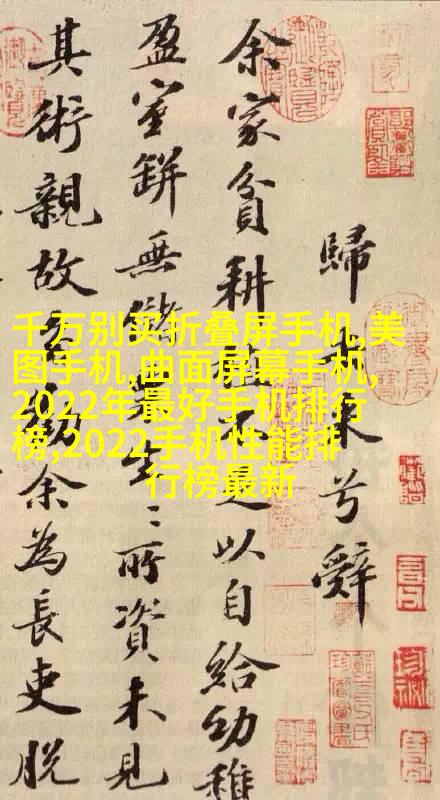 歸去來兮辭
余家貧耕植不足以自給幼稚
盈室缾無儲粟生〻所資未見
其術親故多勸余為長吏脫
千万别买折叠屏手机,美
图手机,曲面屏幕手机,
2022年最好手机排行
榜,2022手机性能排
行榜最新